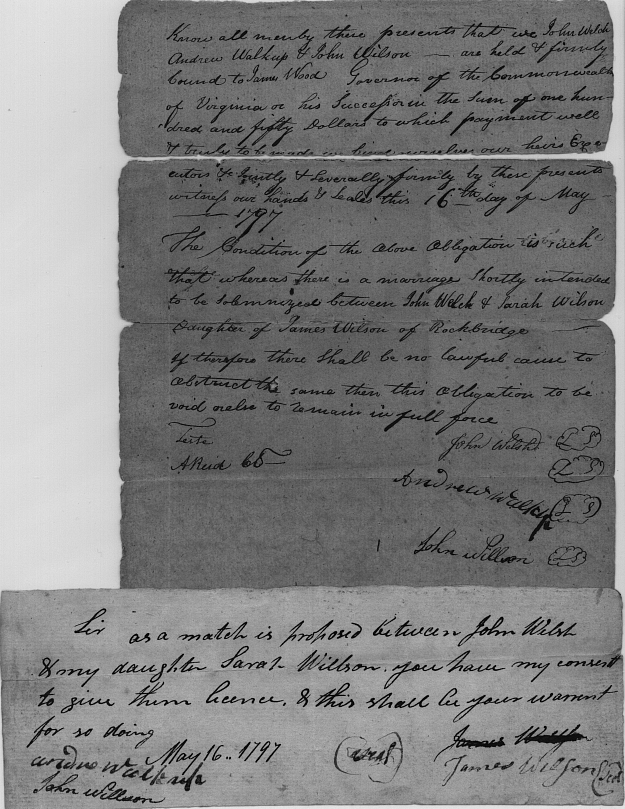 Know all men by these presents that we John Welch
Andrew Walkup & John Wilson — are held & firmly
bound to James Wood Governor of the Commonwealth
of Virginia or his Successor in the Sum of one hun-
dred and fifty Dollars to which payment well
& truly to be made we bind ourselves our heirs Exe
cutors & Jointly & Severally firmly by these presents
witness our hands & Seales this 16th day of May
— 1797
The Condition of the above Obligation is such
that whereas there is a marriage Shortly intended
to be Solemnized between John Welch & Sarah Wilson
Daughter of James Wilson of Rockbridge
If therefore there Shall be no lawful cause to
Obstruct the same then this Obligation to be
void or else to remain in full force
Teste
A Reid
John Welsh LS
LS
Andrew Walkup LS
John Willson LS
Sir as a match is proposed between John Welsh
& my daughter Sarah Willson. you have my consent
to give them licence, & this shall be your warrent
for so doing
May 16.. 1797
andrew walkup
John Willson
James Willson
James Wilson